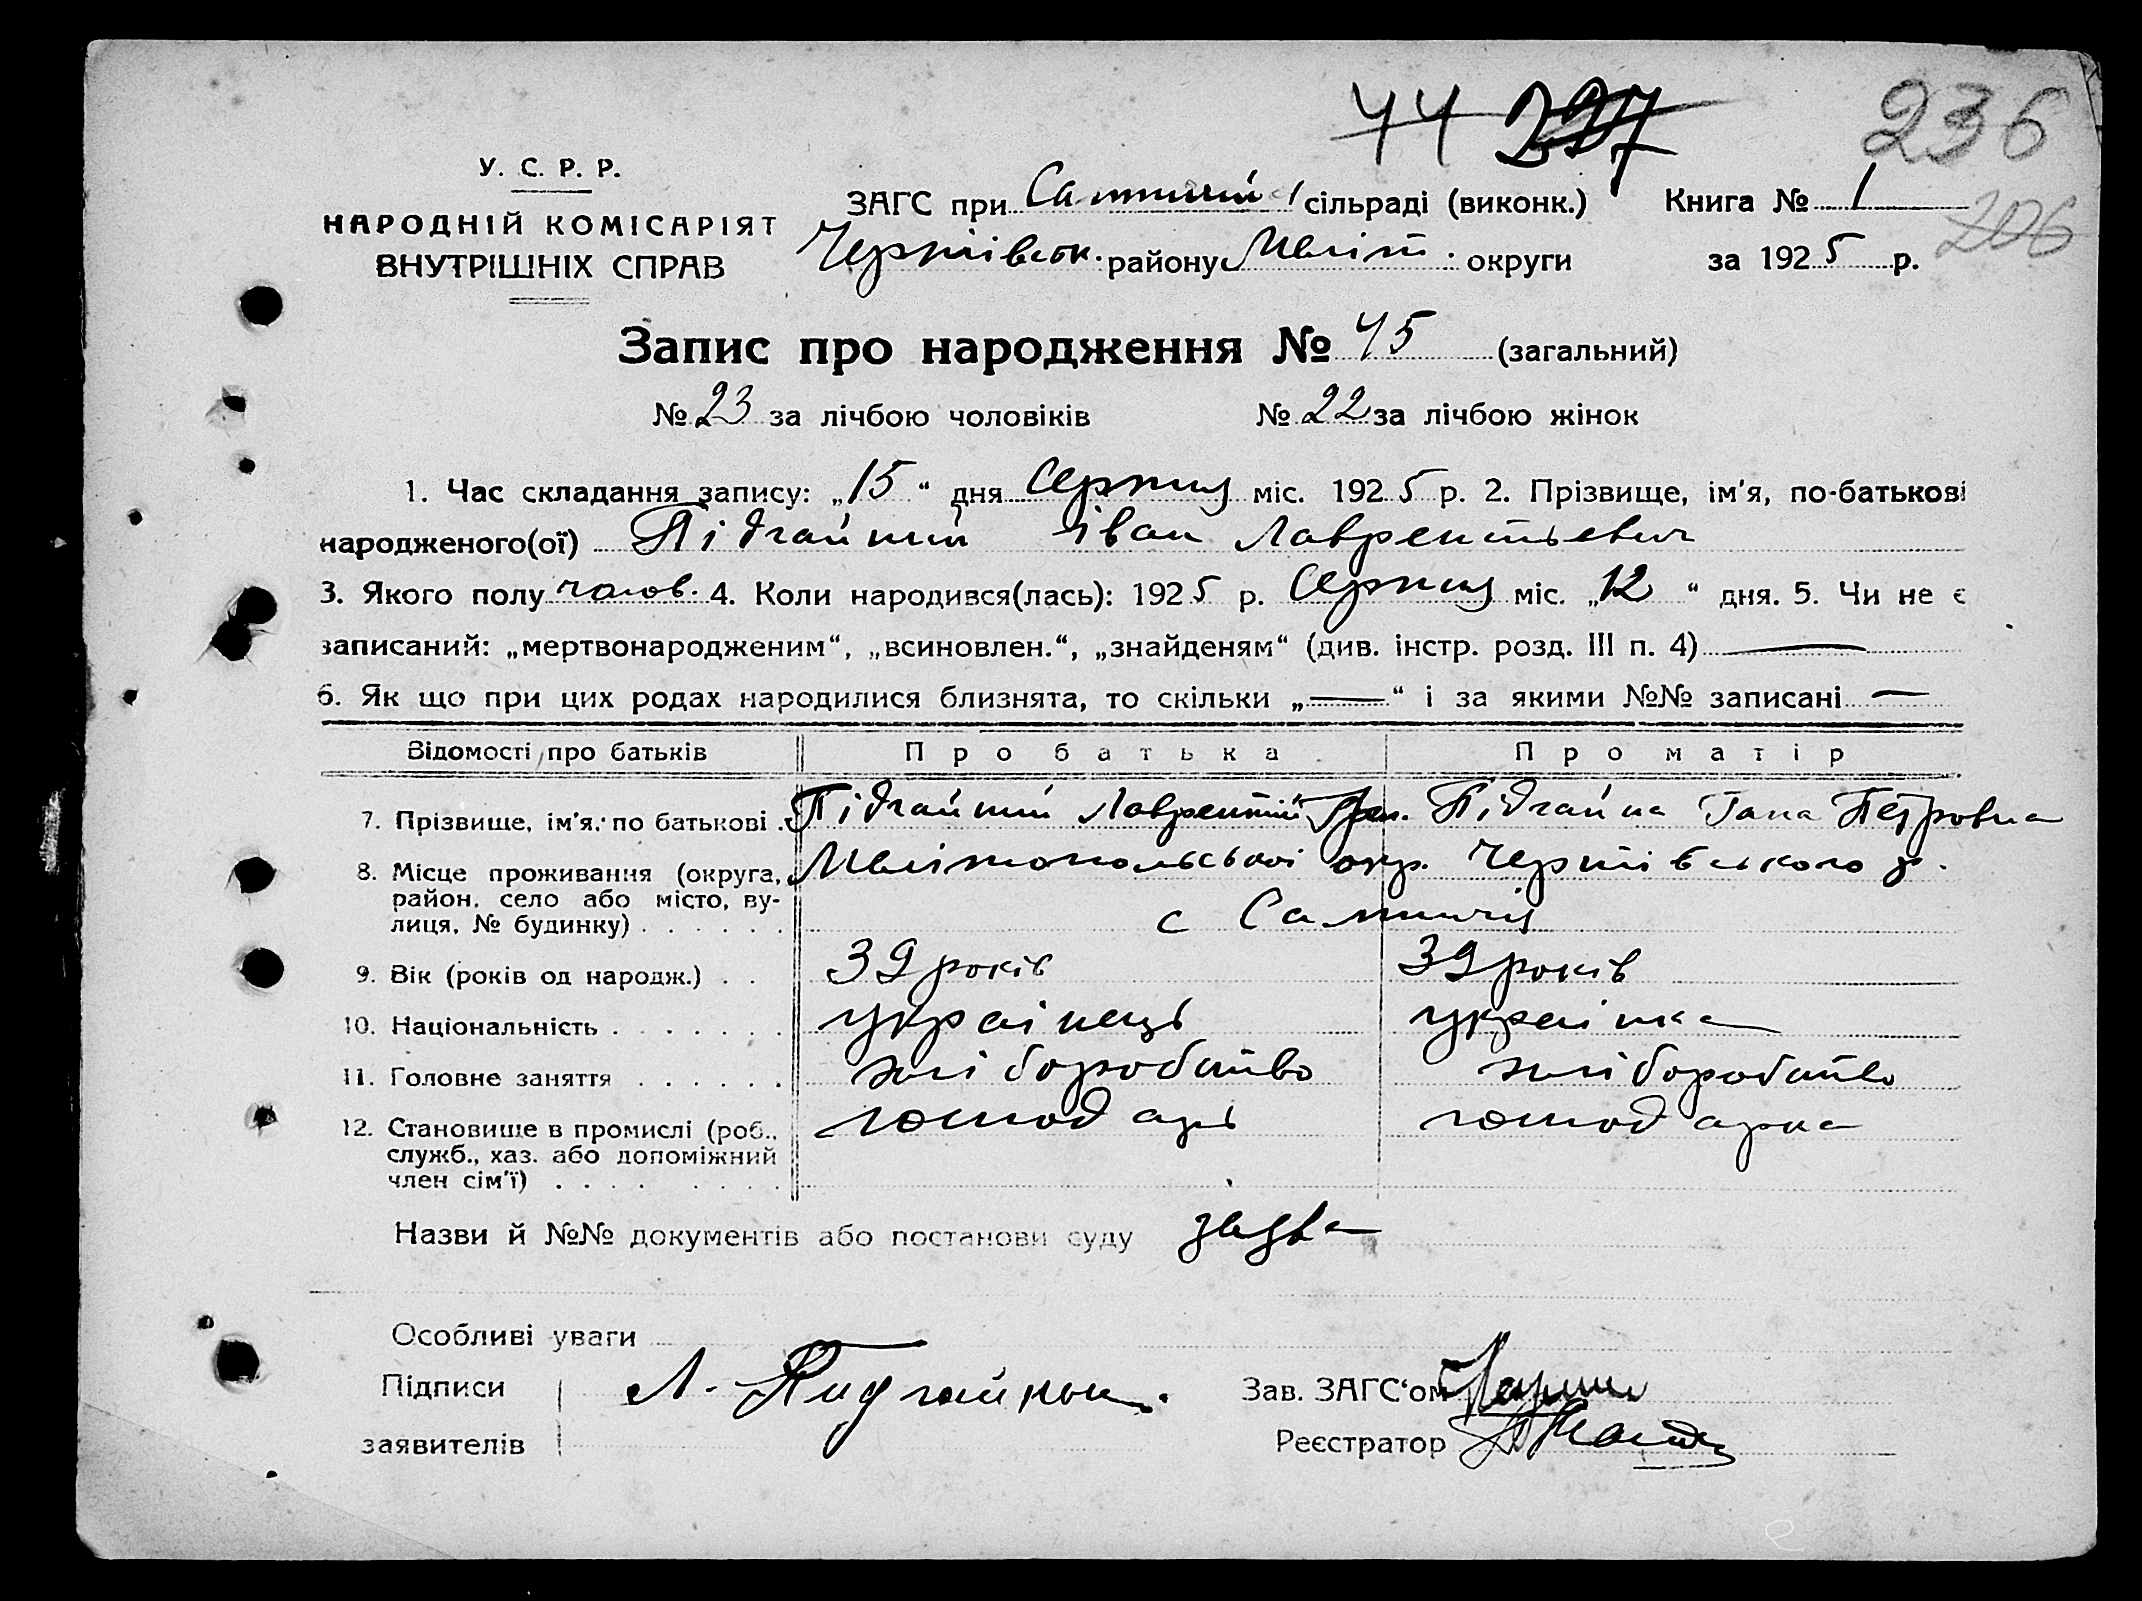 44 227
236
У. С. Р. Р.
НАРОДНІЙ КОМІСАРІЯТ
ВНУТРІШНІХ СПРАВ
ЗАГС при сільраді (виконк.) Книга № 1
206
району Меліт. округи за 1925 р.
Запис про народження № 45 (загальний)
№ 23 за лічбою чоловіків № 22 за лічбою жінок
1. Час складання запису: „15“ дня Серпня міс. 1925 р. 2. Прізвище, ім'я, по-батькові
народженого(ої) Підгайний Іван Лаврентьевич
3. Якого полу чолов. 4. Коли народився(лась): 1925 р. Серпня міс. „12“ дня. 5. Чи не є
записаний: „мертвонародженим“, „всиновлен.“, „знайденям“ (див. інстр. розд. III п. 4) —
6. Як що при цих родах народилися близнята, то скільки „—“ і за якими №№ записані —
Відомості про батьків Про батька Про матір
7. Прізвище, ім'я, по батькові . Підгайний Лаврентій Підгайна Петровна
8. Місце проживання (округа, Мелітопольської окр. р.
район, село або місто, ву-
лиця, № будинку) . . . . . . с
9. Вік (років од народж.) . . 39 років 39 років
10. Національність . . . . . . . українець українка
11. Головне заняття . . . . . . хліборобство хліборобство
12. Становище в промислі (роб., господарь господарка
служб., хаз. або допоміжний
член сім'ї) . . . . . . . .
Назви й №№ документів або постанови суду заява
Особливі уваги
Підписи Л. Зав. ЗАГС'ом
заявителів Реєстратор